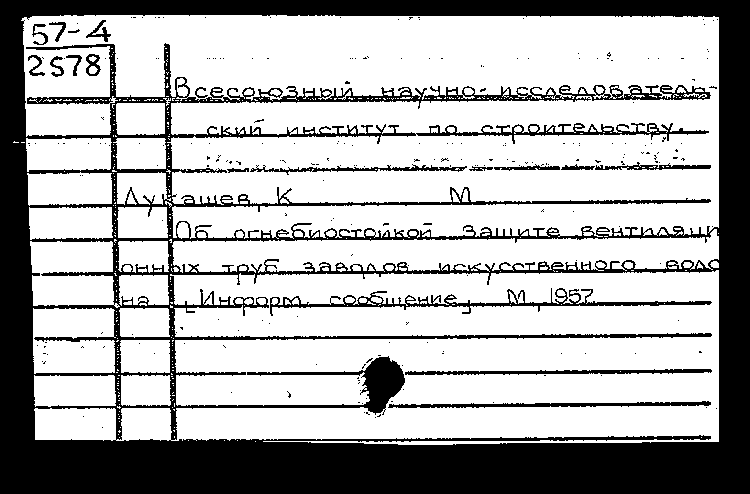 57-4
2578
Всесоюзный научно-исследователь-
ский институт по строительству.
Лукашев, К М
Об огнебиостойкой защите вентиляци
онных труб заводов искусственного воло
на [Информ. сообщение] М, 1957